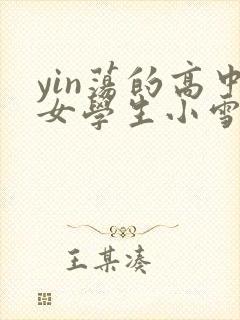 yin蕩的高中
女學生小雪
王某湊